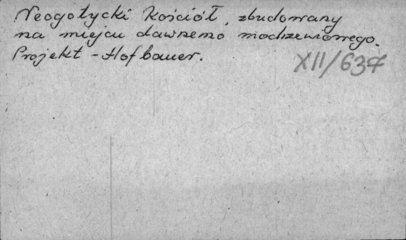 Neogotycki Kościół, zbudowany
na miejscu dawnego modrzewiowego.
Projekt - Hofbauer.
XII/637